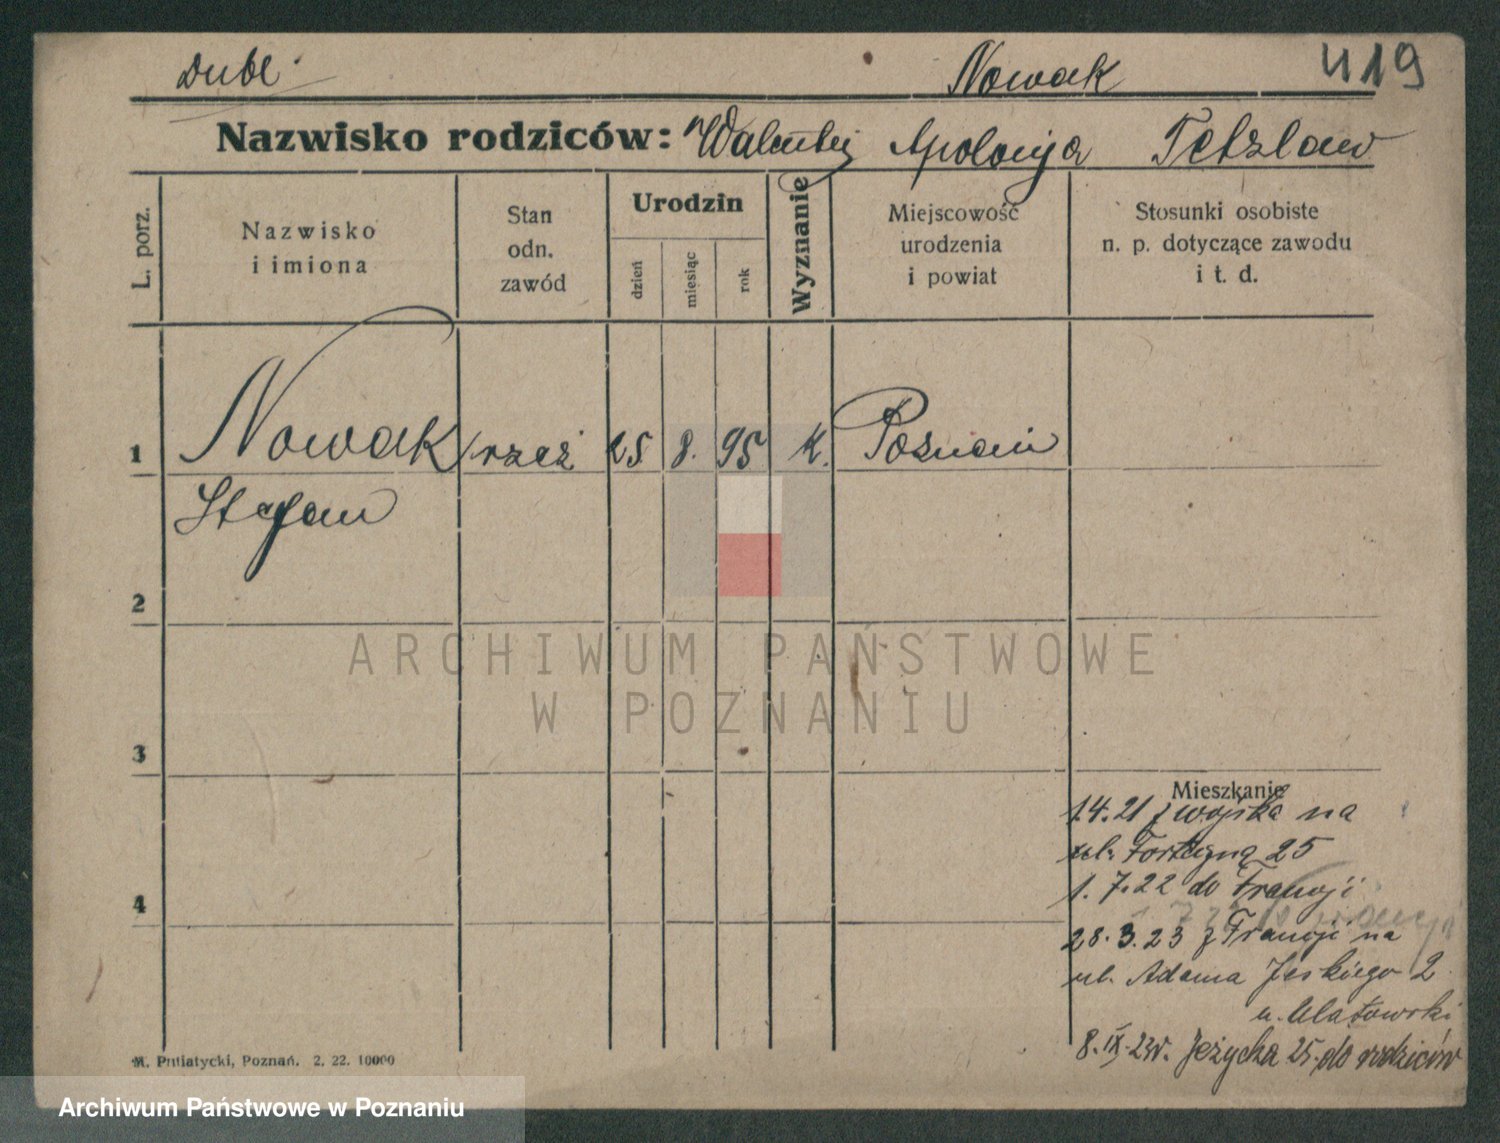 Dubl.
Nowak
419
Nazwisko rodziców: Walenty Apolonja Tetzlaw
L. porz.
Nazwisko
i imiona
Stan
odn.
zawód
Urodzin
dzień
miesiąc
rok
Wyznanie
Miejscowość
urodzenia
i powiat
Stosunki osobiste
n. p. dotyczące zawodu
i t. d.
1 Nowak rzeź 25 8. 95 k. Poznań
Stefan
2
ARCHIWUM PAŃSTWOWE
W POZNANIU
3
Mieszkanie
1.4.21 z wojska na
ul. 25
1.7.22 do Francji
28.3.23 z Francji na
ul. Adama Jeskiego 2
u. Ulatowski
8.IX.23 r. Jeżycka 25. do rodziców
4
M. Putiatycki, Poznań. 2. 22. 10000
Archiwum Państwowe w Poznaniu